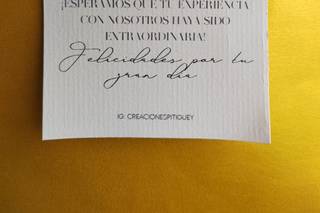 ¡ESPERAMOS QUE TU EXPERIENCIA
CON NOSOTROS HAYA SIDO
EXTRAORDINARIA!
Felicidades por tu
gran día
IG: CREACIONESPITIGUEY